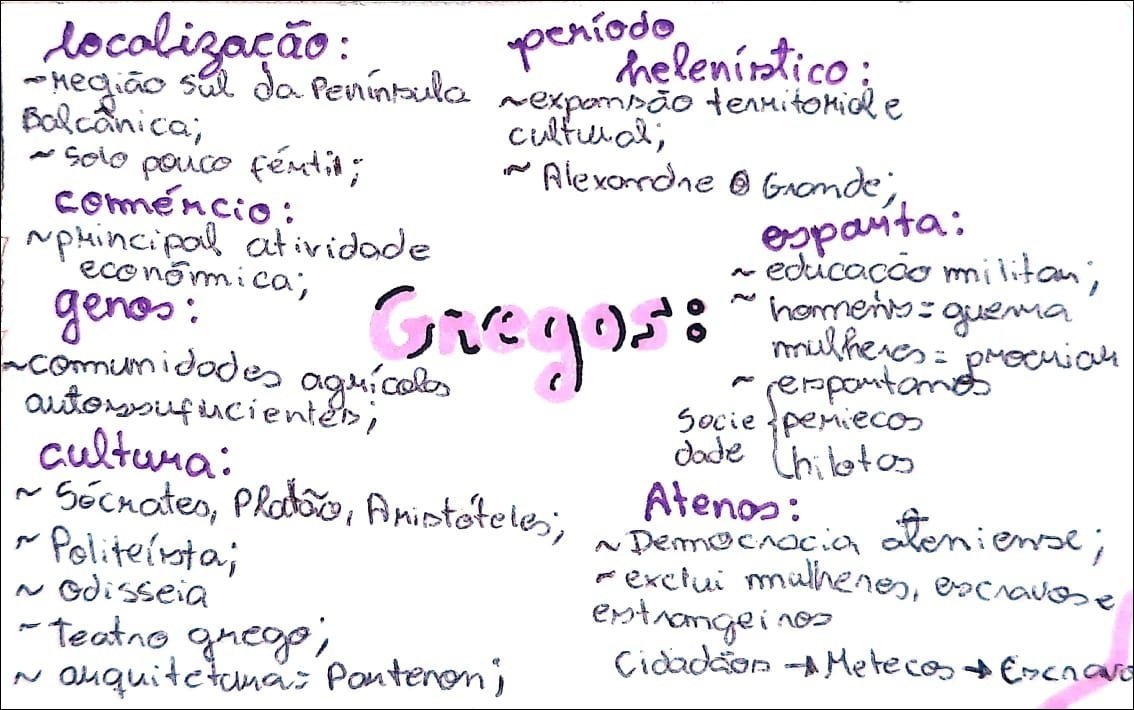 localização:
~região sul da Península
Balcânica;
~ solo pouco fértil;
comércio:
~principal atividade
econômica;
genos:
~comunidades agrícolas
autossuficientes;
cultura:
~ Sócrates, Platão, Aristóteles;
~ Politeísta;
~ Odisseia
~ Teatro grego;
~ arquitetura: Partenon;
Gregos:
período
helenístico:
~expansão territorial e
cultural;
~ Alexandre O Grande;
esparta:
~ educação militar;
~ homens = guerra
mulheres = procriar
~ espartanos
socie periecos
dade hilotas
Atenas:
~ Democracia ateniense;
~ exclui mulheres, escravos e
estrangeiros
Cidadãos → Metecos → Escravo